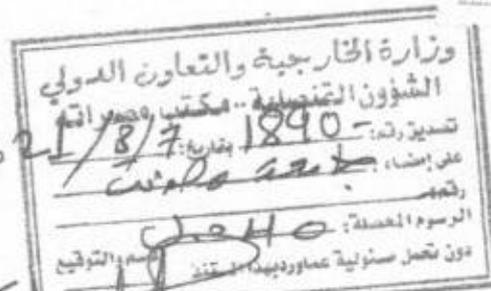 وزارة الخارجية والتعاون الدولي
الشؤون القنصلية .. مكتب مصراته
تصديق رقم: 1890 بتاريخ: 7/8/21
على إمضاء: جامعة
رقم
الرسوم المحصلة:
دون تحمل مسئولية عما ورد بهذا المستند والتوقيع